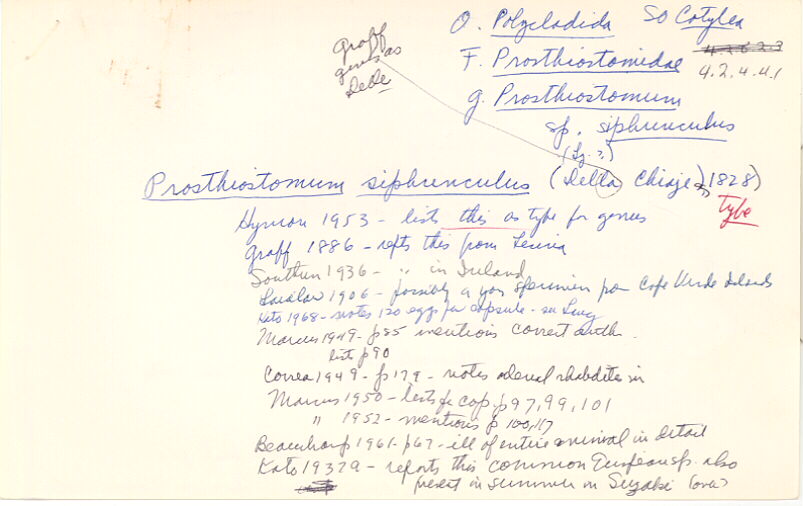 O. Polycladida SO Cotylea
4.2.4.4.1
F. Prosthiostomidae
g. Prosthiostomum
sp. siphrenculus
(Sg. ?)
Graff
gives as
Delle
Prosthiostomum siphrenculus (Della Chiaje, 1828)
Type
Hyman 1953 - lists this as type for genus
Graff 1886 - repts this from
Southern 1936 - " in Ireland
Laidlaw 1906 - possibly a yon specimen from Cape Verde Islands
Kato 1968 - notes 120 eggs per capsule - see Lang
Marcus 1949 - p85 mentions correct auth.
lists p90
Correa 1949 - p179 - notes adenal rhabdites in
Marcus 1950 - lists for cop. p97, 99, 101
" 1952 - mentions p 100, 117
Beauchamp 1961 - p67 - ill of entire animal in detail
Kato 1937a - reports this common European sp. also
present in summer in Suzaki (ova)